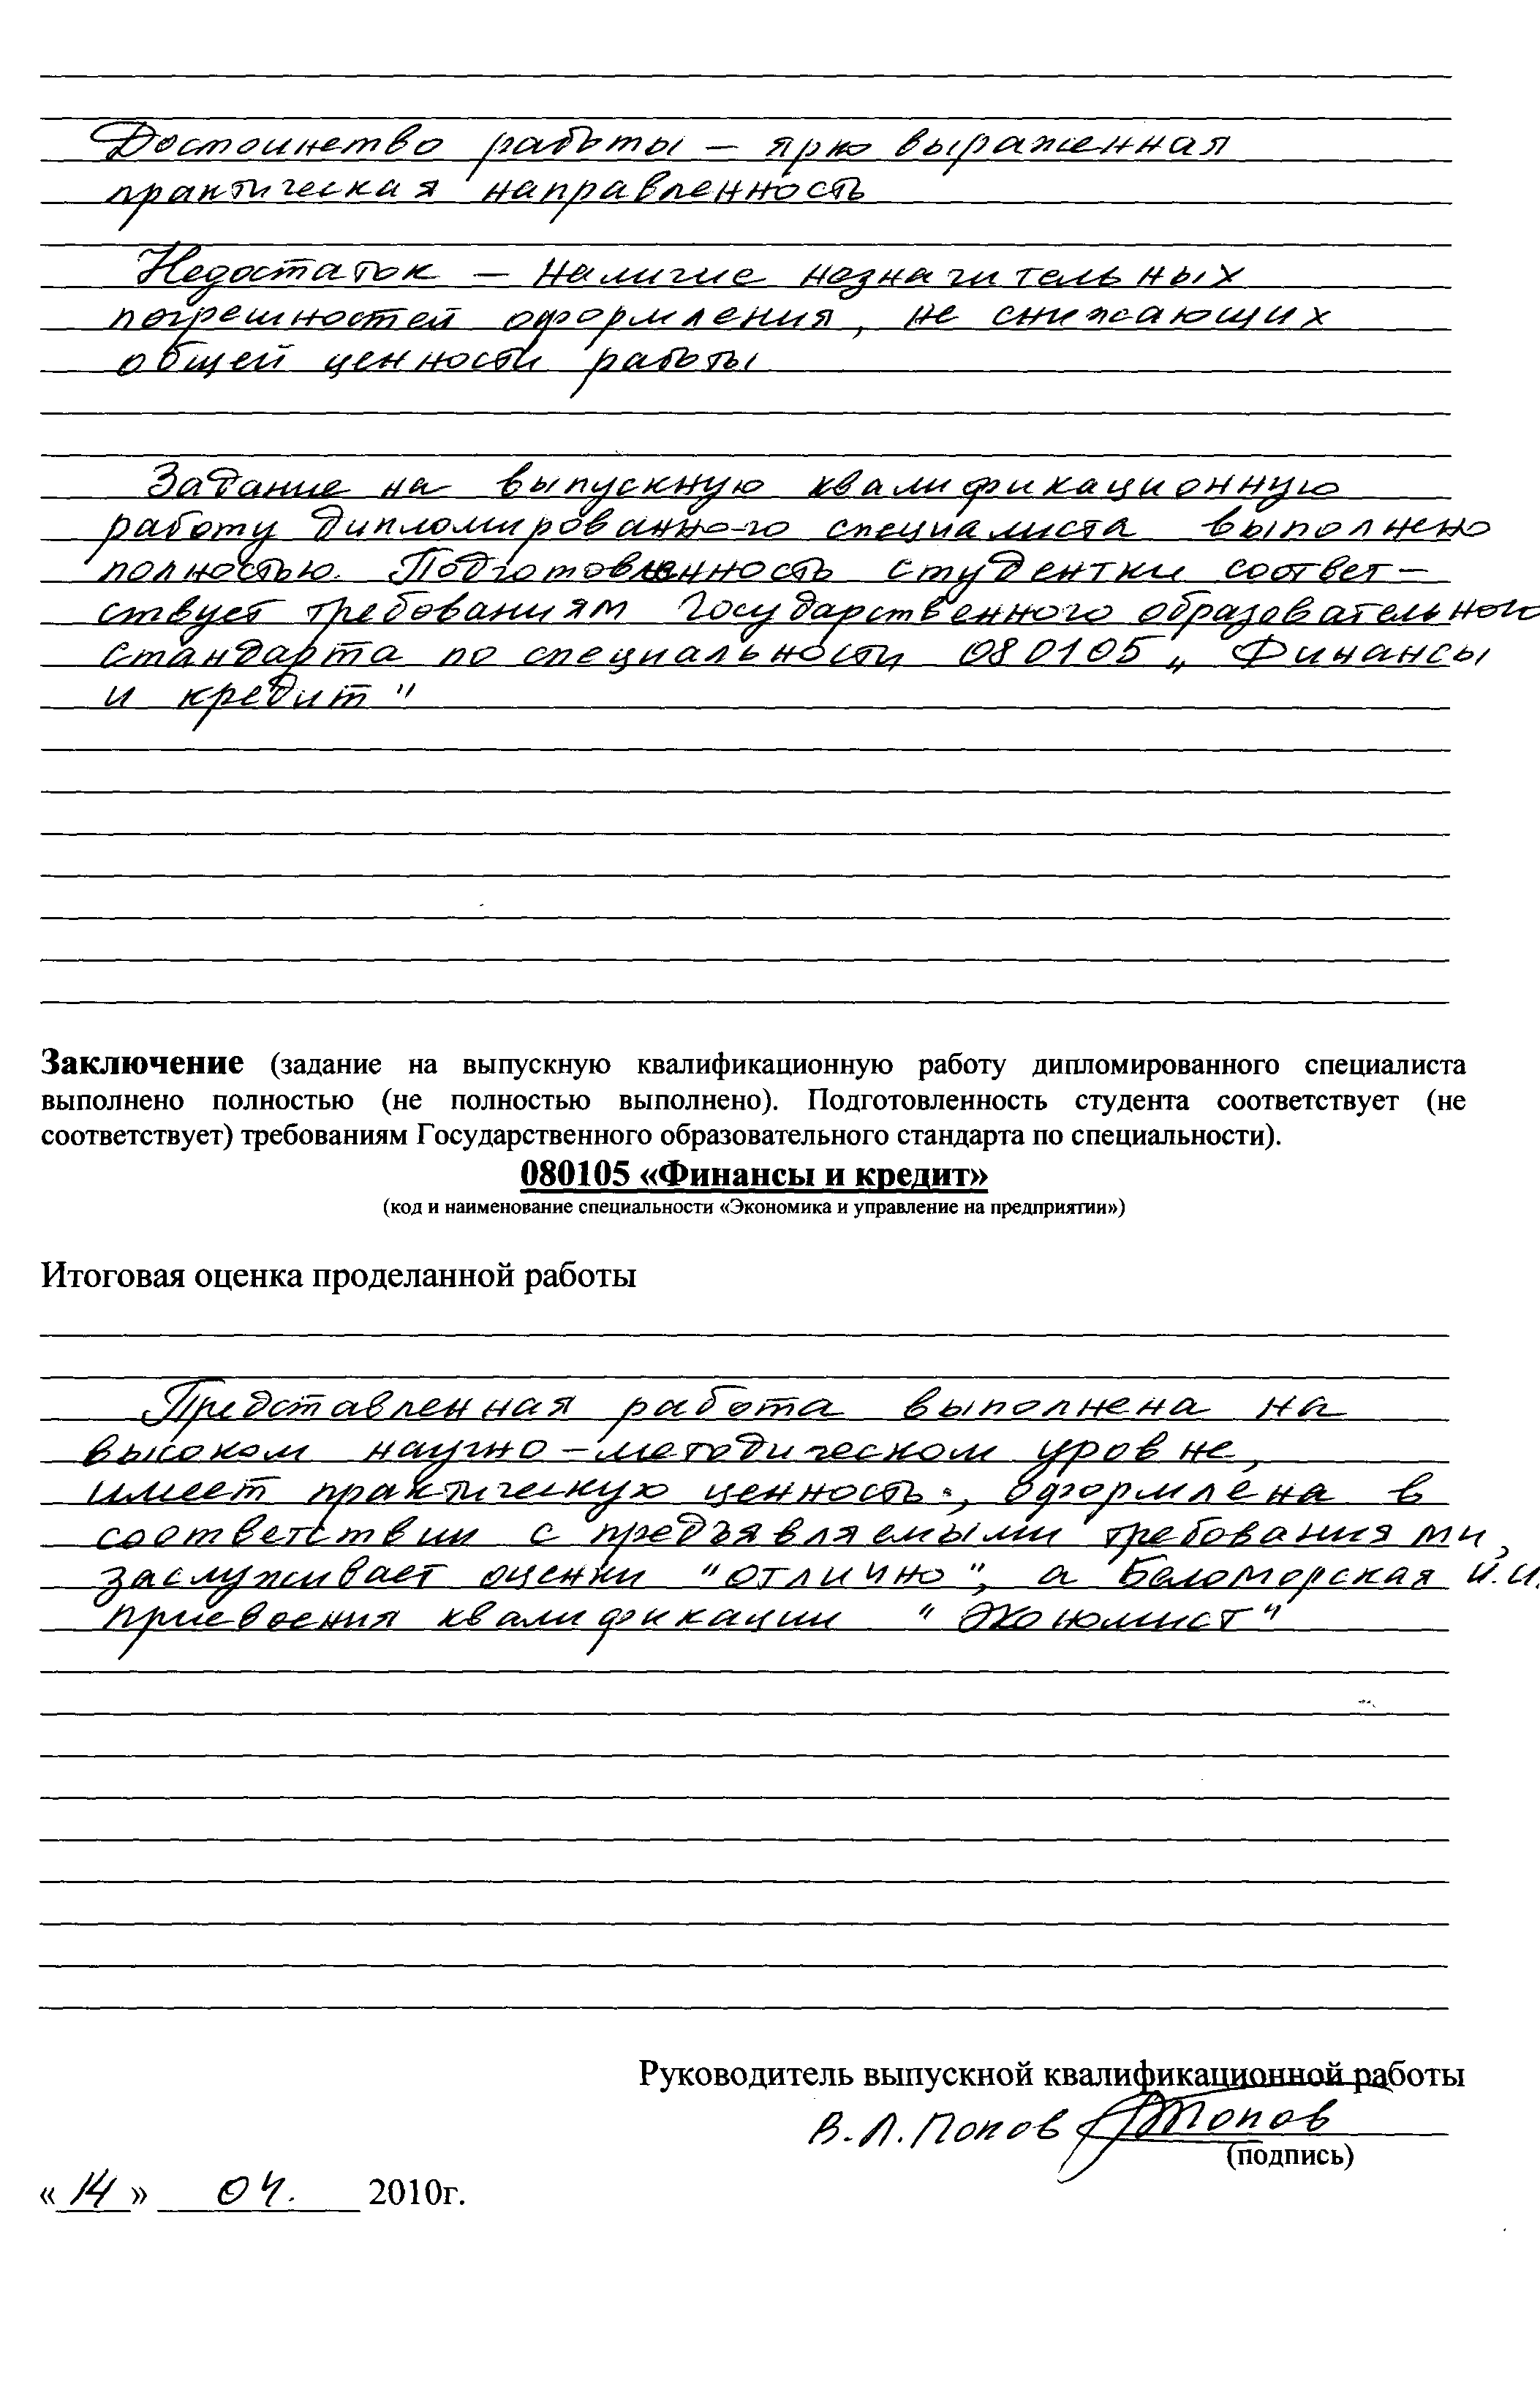 Достоинство работы – ярко выраженная
практическая направленность
Недостаток – наличие незначительных
погрешностей оформления, не снижающих
общей ценности работы
Задание на выпускную квалификационную
работу дипломированного специалиста выполнено
полностью. Подготовленность студентки соответ-
ствует требованиям Государственного образовательного
стандарта по специальности 080105 „Финансы
и кредит"
Заключение (задание на выпускную квалификационную работу дипломированного специалиста
выполнено полностью (не полностью выполнено). Подготовленность студента соответствует (не
соответствует) требованиям Государственного образовательного стандарта по специальности).
080105 «Финансы и кредит»
(код и наименование специальности «Экономика и управление на предприятии»)
Итоговая оценка проделанной работы
Представленная работа выполнена на
высоком научно-методическом уровне,
имеет практическую ценность, оформлена в
соответствии с предъявляемыми требованиями,
заслуживает оценки "отлично", а Беломорская И.И.
присвоения квалификации "Экономист"
Руководитель выпускной квалификационной работы
В.Л. Попов Попов
(подпись)
«14» 04. 2010г.